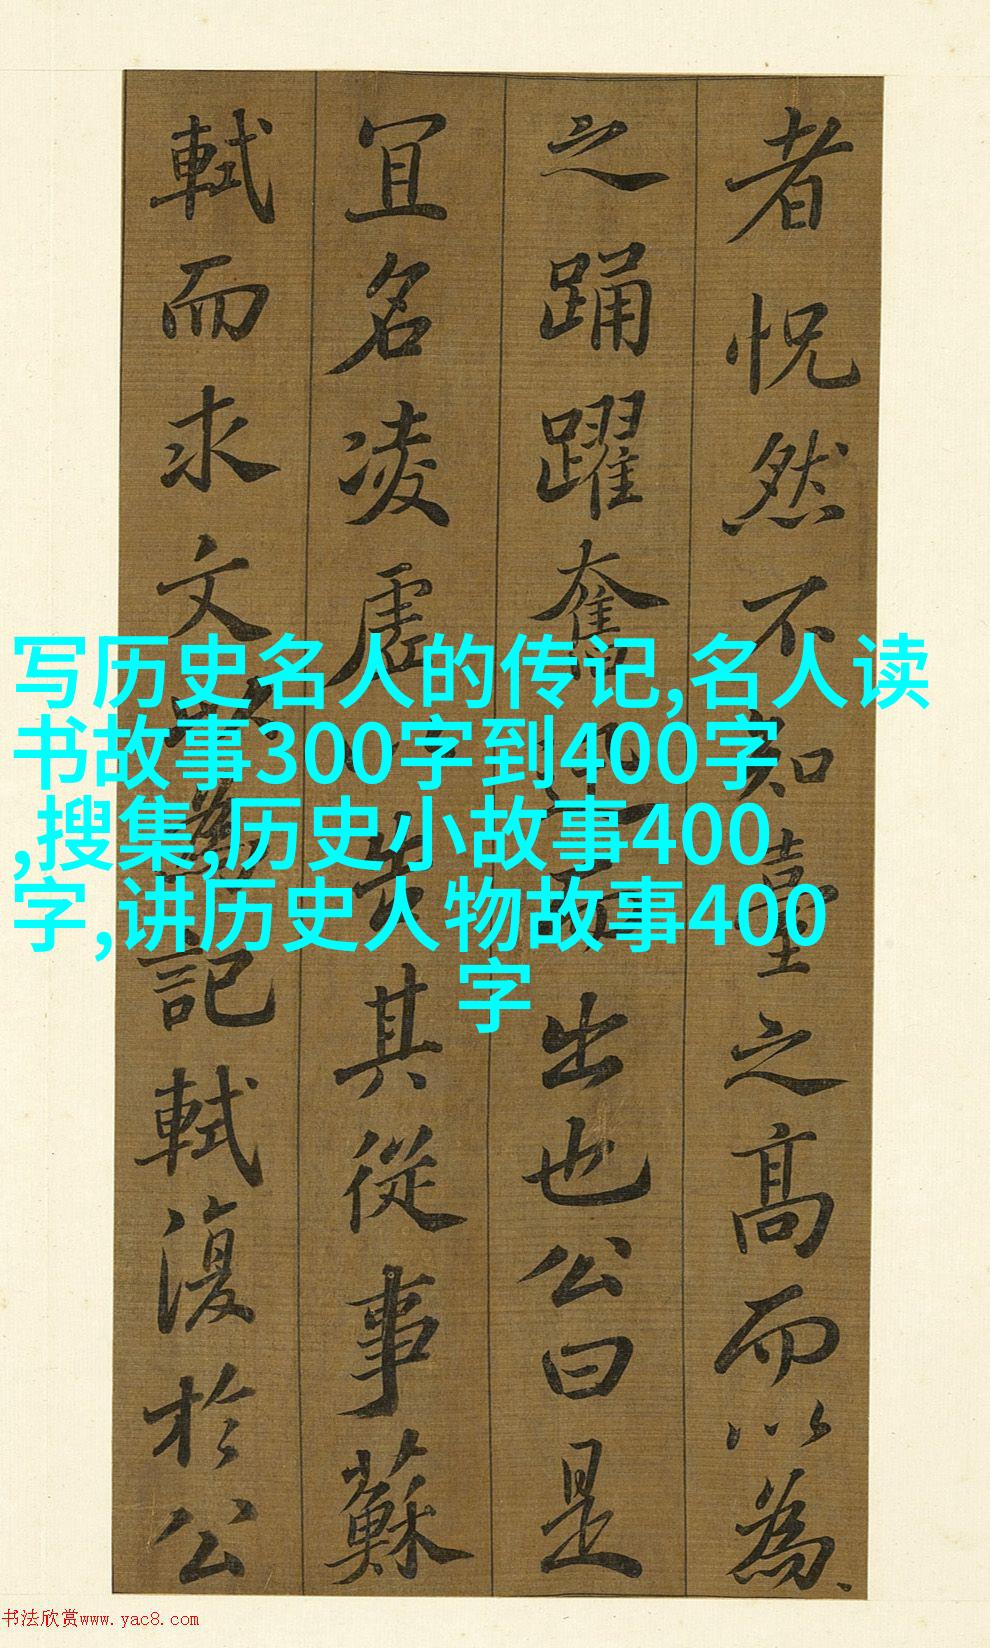 者怳然不知臺之高而以為
之踊躍奮迅而出也公曰是
冝名凌虗以告其從事蘇
軾而求文以為記軾復於公
写历史名人的传记,名人读
书故事300字到400字
,搜集,历史小故事400
字,讲历史人物故事400
字
书法欣赏www.yac8.com